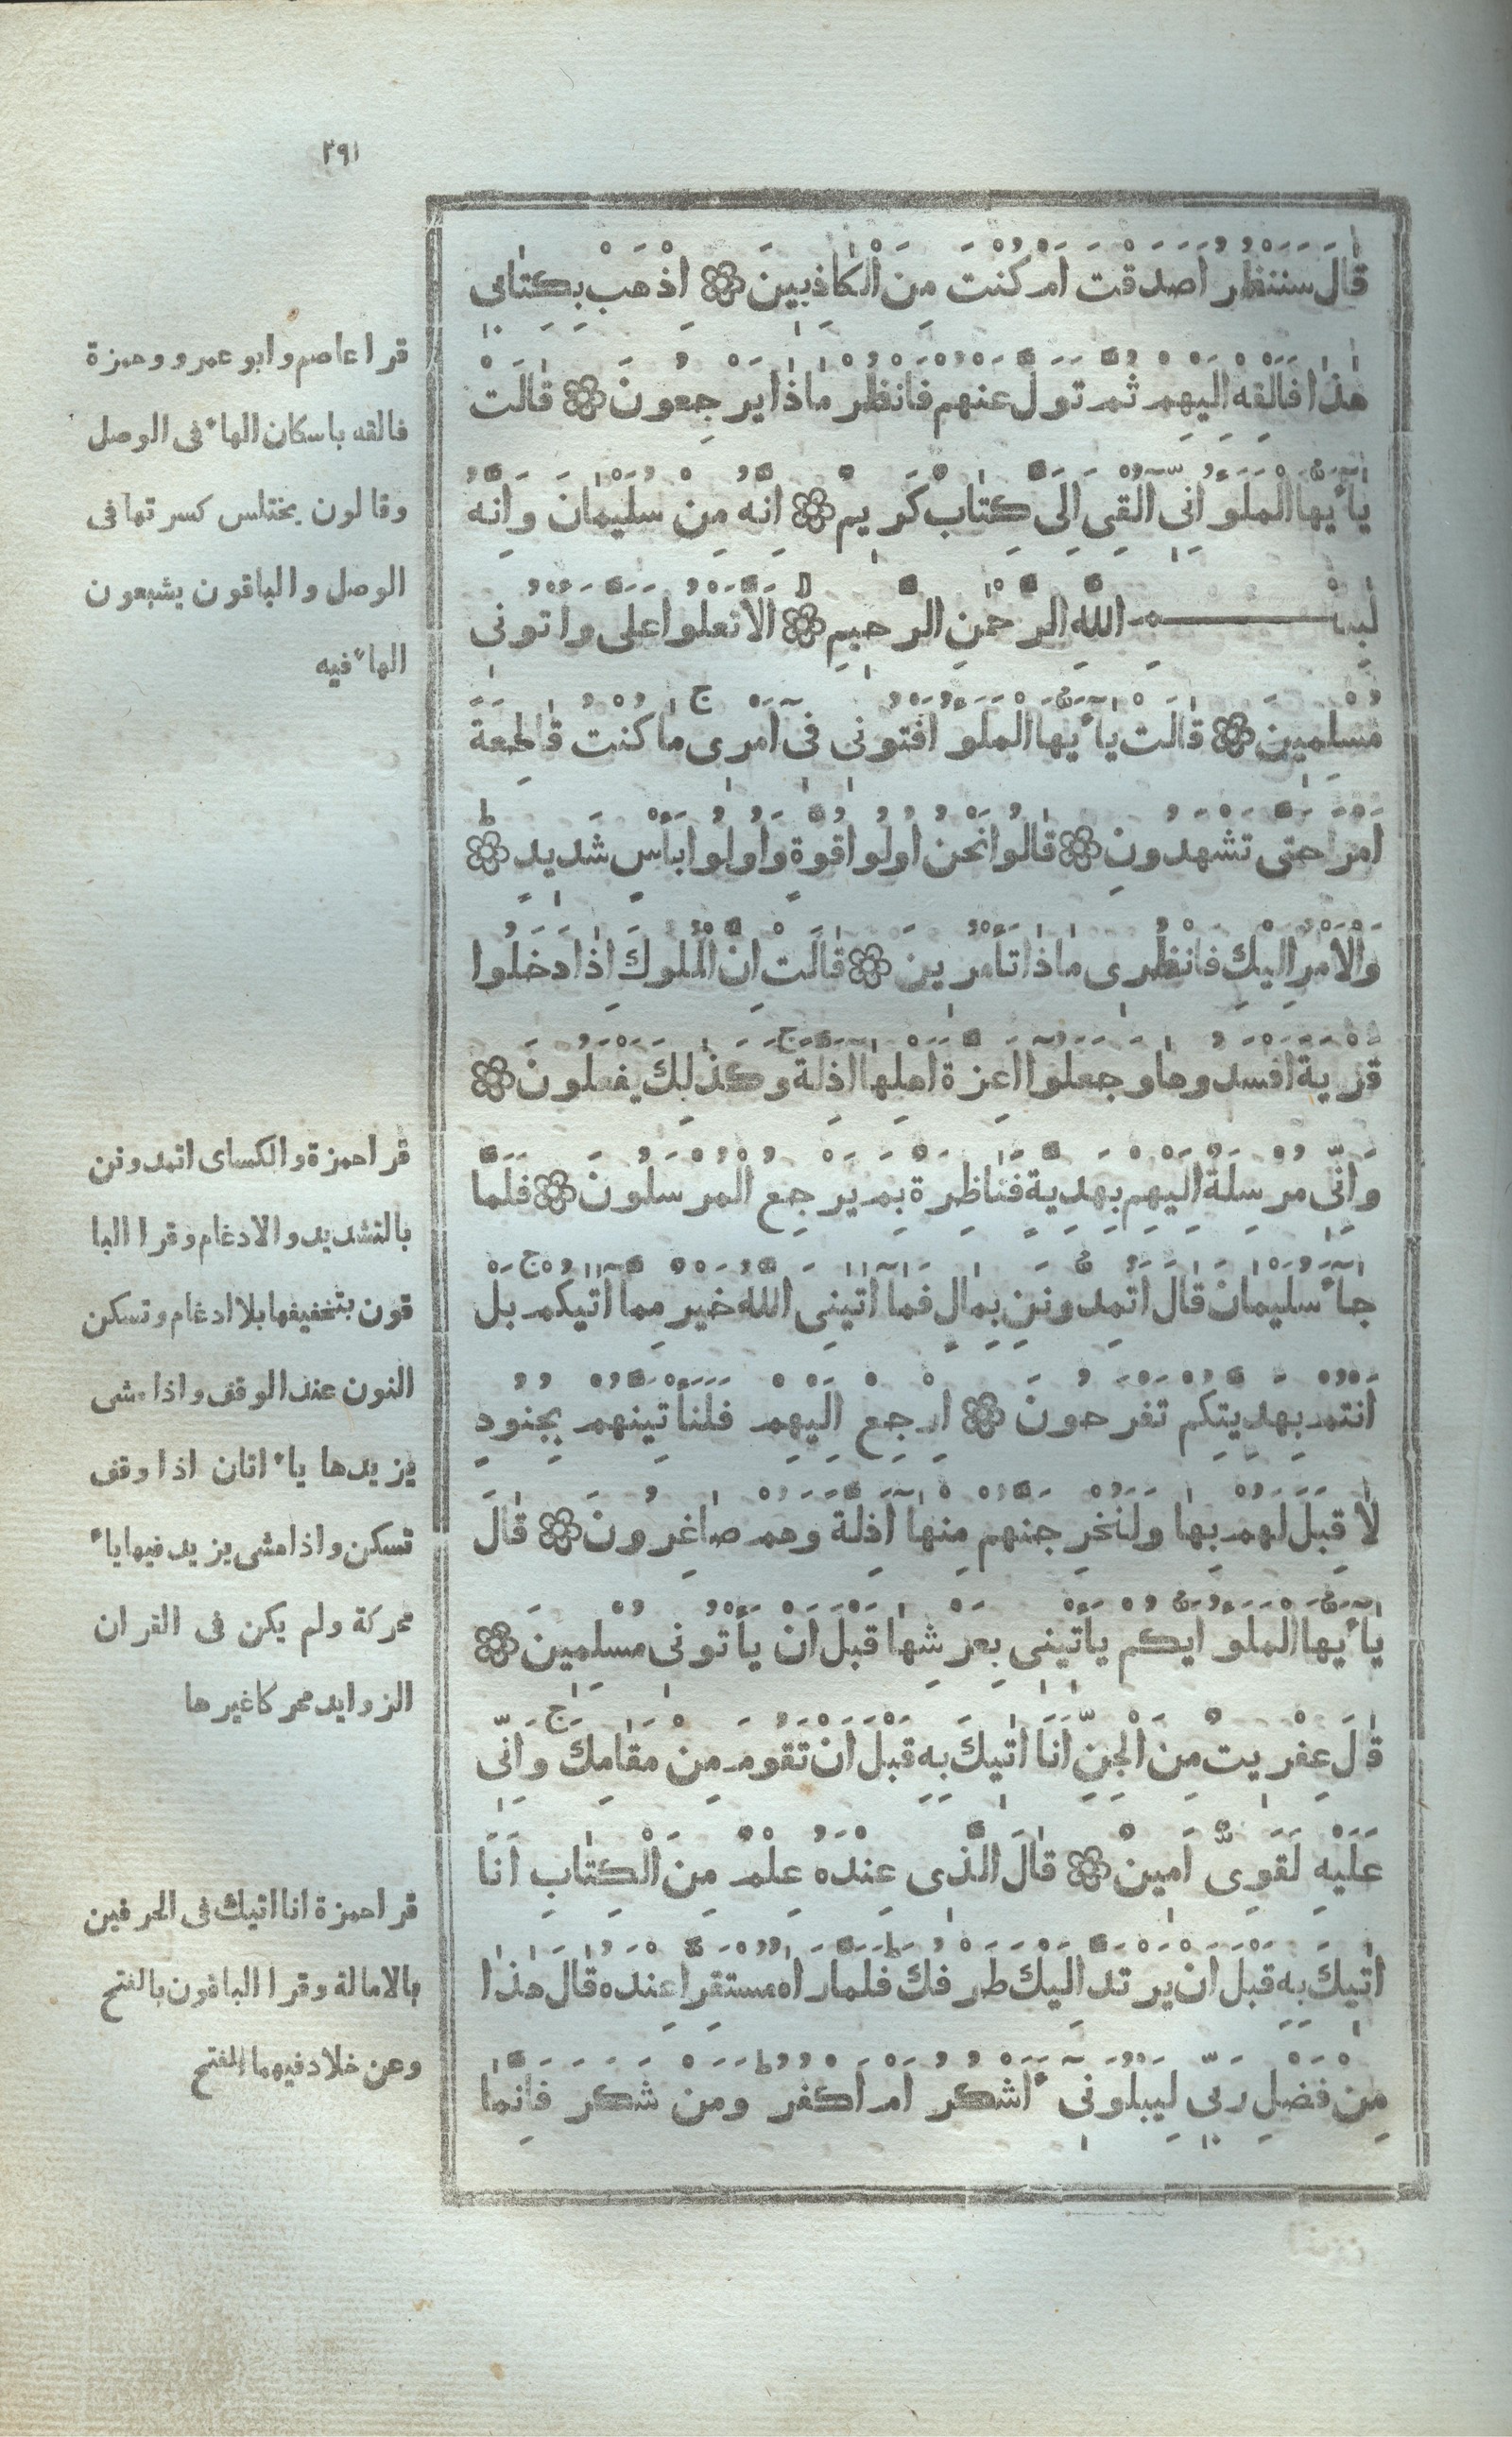 ٢٩١
قَالَ سَنَنْظُرُ اَصَدَقْتَ اَمْ كُنْتَ مِنَ الْكَاذِبِينَ ۞ اِذْهَبْ بِكِتَابِى
هٰذَا فَاَلْقِهْ اِلَيْهِمْ ثُمَّ تَوَلَّ عَنْهُمْ فَانْظُرْ مَاذَا يَرْجِعُونَ ۞ قَالَتْ
يَآءَيُّهَا الْمَلَؤُ اِنِّىٓ اُلْقِىَ اِلَىَّ كِتَابٌ كَرِيمٌ ۞ اِنَّهُ مِنْ سُلَيْمَانَ وَاِنَّهُ
بِسْمِ اللّٰهِ الرَّحْمٰنِ الرَّحِيمِ ۞ اَلَّا تَعْلُوا عَلَىَّ وَاْتُونِى
مُسْلِمِينَ ۞ قَالَتْ يَآءَيُّهَا الْمَلَؤُ اَفْتُونِى فِىٓ اَمْرِى ج مَا كُنْتُ قَاطِعَةً
اَمْرًا حَتَّى تَشْهَدُونِ ۞ قَالُوا نَحْنُ اُولُوا قُوَّةٍ وَاُولُوا بَأْسٍ شَدِيدٍ ط ۞
وَالْاَمْرُ اِلَيْكِ فَانْظُرِى مَاذَا تَأْمُرِينَ ۞ قَالَتْ اِنَّ الْمُلُوكَ اِذَا دَخَلُوا
قَرْيَةً اَفْسَدُوهَا وَجَعَلُوٓا اَعِزَّةَ اَهْلِهَا اَذِلَّةً ج وَكَذٰلِكَ يَفْعَلُونَ ۞
وَاِنِّى مُرْسِلَةٌ اِلَيْهِمْ بِهَدِيَّةٍ فَنَاظِرَةٌ بِمَ يَرْجِعُ الْمُرْسَلُونَ ۞ فَلَمَّا
جَآءَ سُلَيْمَانَ قَالَ اَتُمِدُّونَنِ بِمَالٍ فَمَآ اٰتٰينِىَ اللّٰهُ خَيْرٌ مِمَّآ اٰتٰيكُمْ ج بَلْ
اَنْتُمْ بِهَدِيَّتِكُمْ تَفْرَحُونَ ۞ اِرْجِعْ اِلَيْهِمْ فَلَنَأْتِيَنَّهُمْ بِجُنُودٍ
لَا قِبَلَ لَهُمْ بِهَا وَلَنُخْرِجَنَّهُمْ مِنْهَآ اَذِلَّةً وَهُمْ صَاغِرُونَ ۞ قَالَ
يَآءَيُّهَا الْمَلَؤُ اَيُّكُمْ يَأْتِينِى بِعَرْشِهَا قَبْلَ اَنْ يَأْتُونِى مُسْلِمِينَ ۞
قَالَ عِفْرِيتٌ مِنَ الْجِنِّ اَنَا اٰتِيكَ بِهِ قَبْلَ اَنْ تَقُومَ مِنْ مَقَامِكَ ج وَاِنِّى
عَلَيْهِ لَقَوِىٌّ اَمِينٌ ۞ قَالَ الَّذِى عِنْدَهُ عِلْمٌ مِنَ الْكِتَابِ اَنَا
اٰتِيكَ بِهِ قَبْلَ اَنْ يَرْتَدَّ اِلَيْكَ طَرْفُكَ ط فَلَمَّا رَاٰهُ مُسْتَقِرًّا عِنْدَهُ قَالَ هٰذَا
مِنْ فَضْلِ رَبِّى لِيَبْلُوَنِىٓ ءَاَشْكُرُ اَمْ اَكْفُرُ ط وَمَنْ شَكَرَ فَاِنَّمَا
قرا عاصم وابو عمرو وحمزة
فالقه باسكان الهاء فى الوصل
وقالون يختلس كسرتها فى
الوصل والباقون يشبعون
الهاء فيه
قرا حمزة والكساى اتمدونن
بالتشديد والادغام وقرا البا
قون بتخفيفها بلا ادغام وتسكن
النون عند الوقف واذا مشى
يزيدها ياء اتان اذا وقف
تسكن واذا مشى يزيد فيها ياء
محركة ولم يكن فى القران
الزوايد محركا غيرها
قرا حمزة انا اتيك فى الحرفين
بالامالة وقرا الباقون بالفتح
وعن خلاد فيهما الفتح